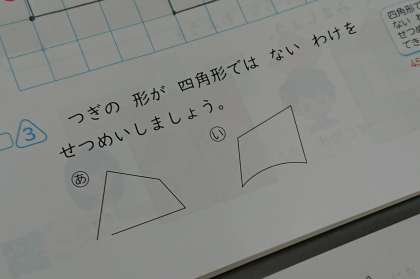 3
つぎの 形が 四角形では ない わけを
せつめいしましょう。
あ
い
四角形で
ない
せつめ
でき